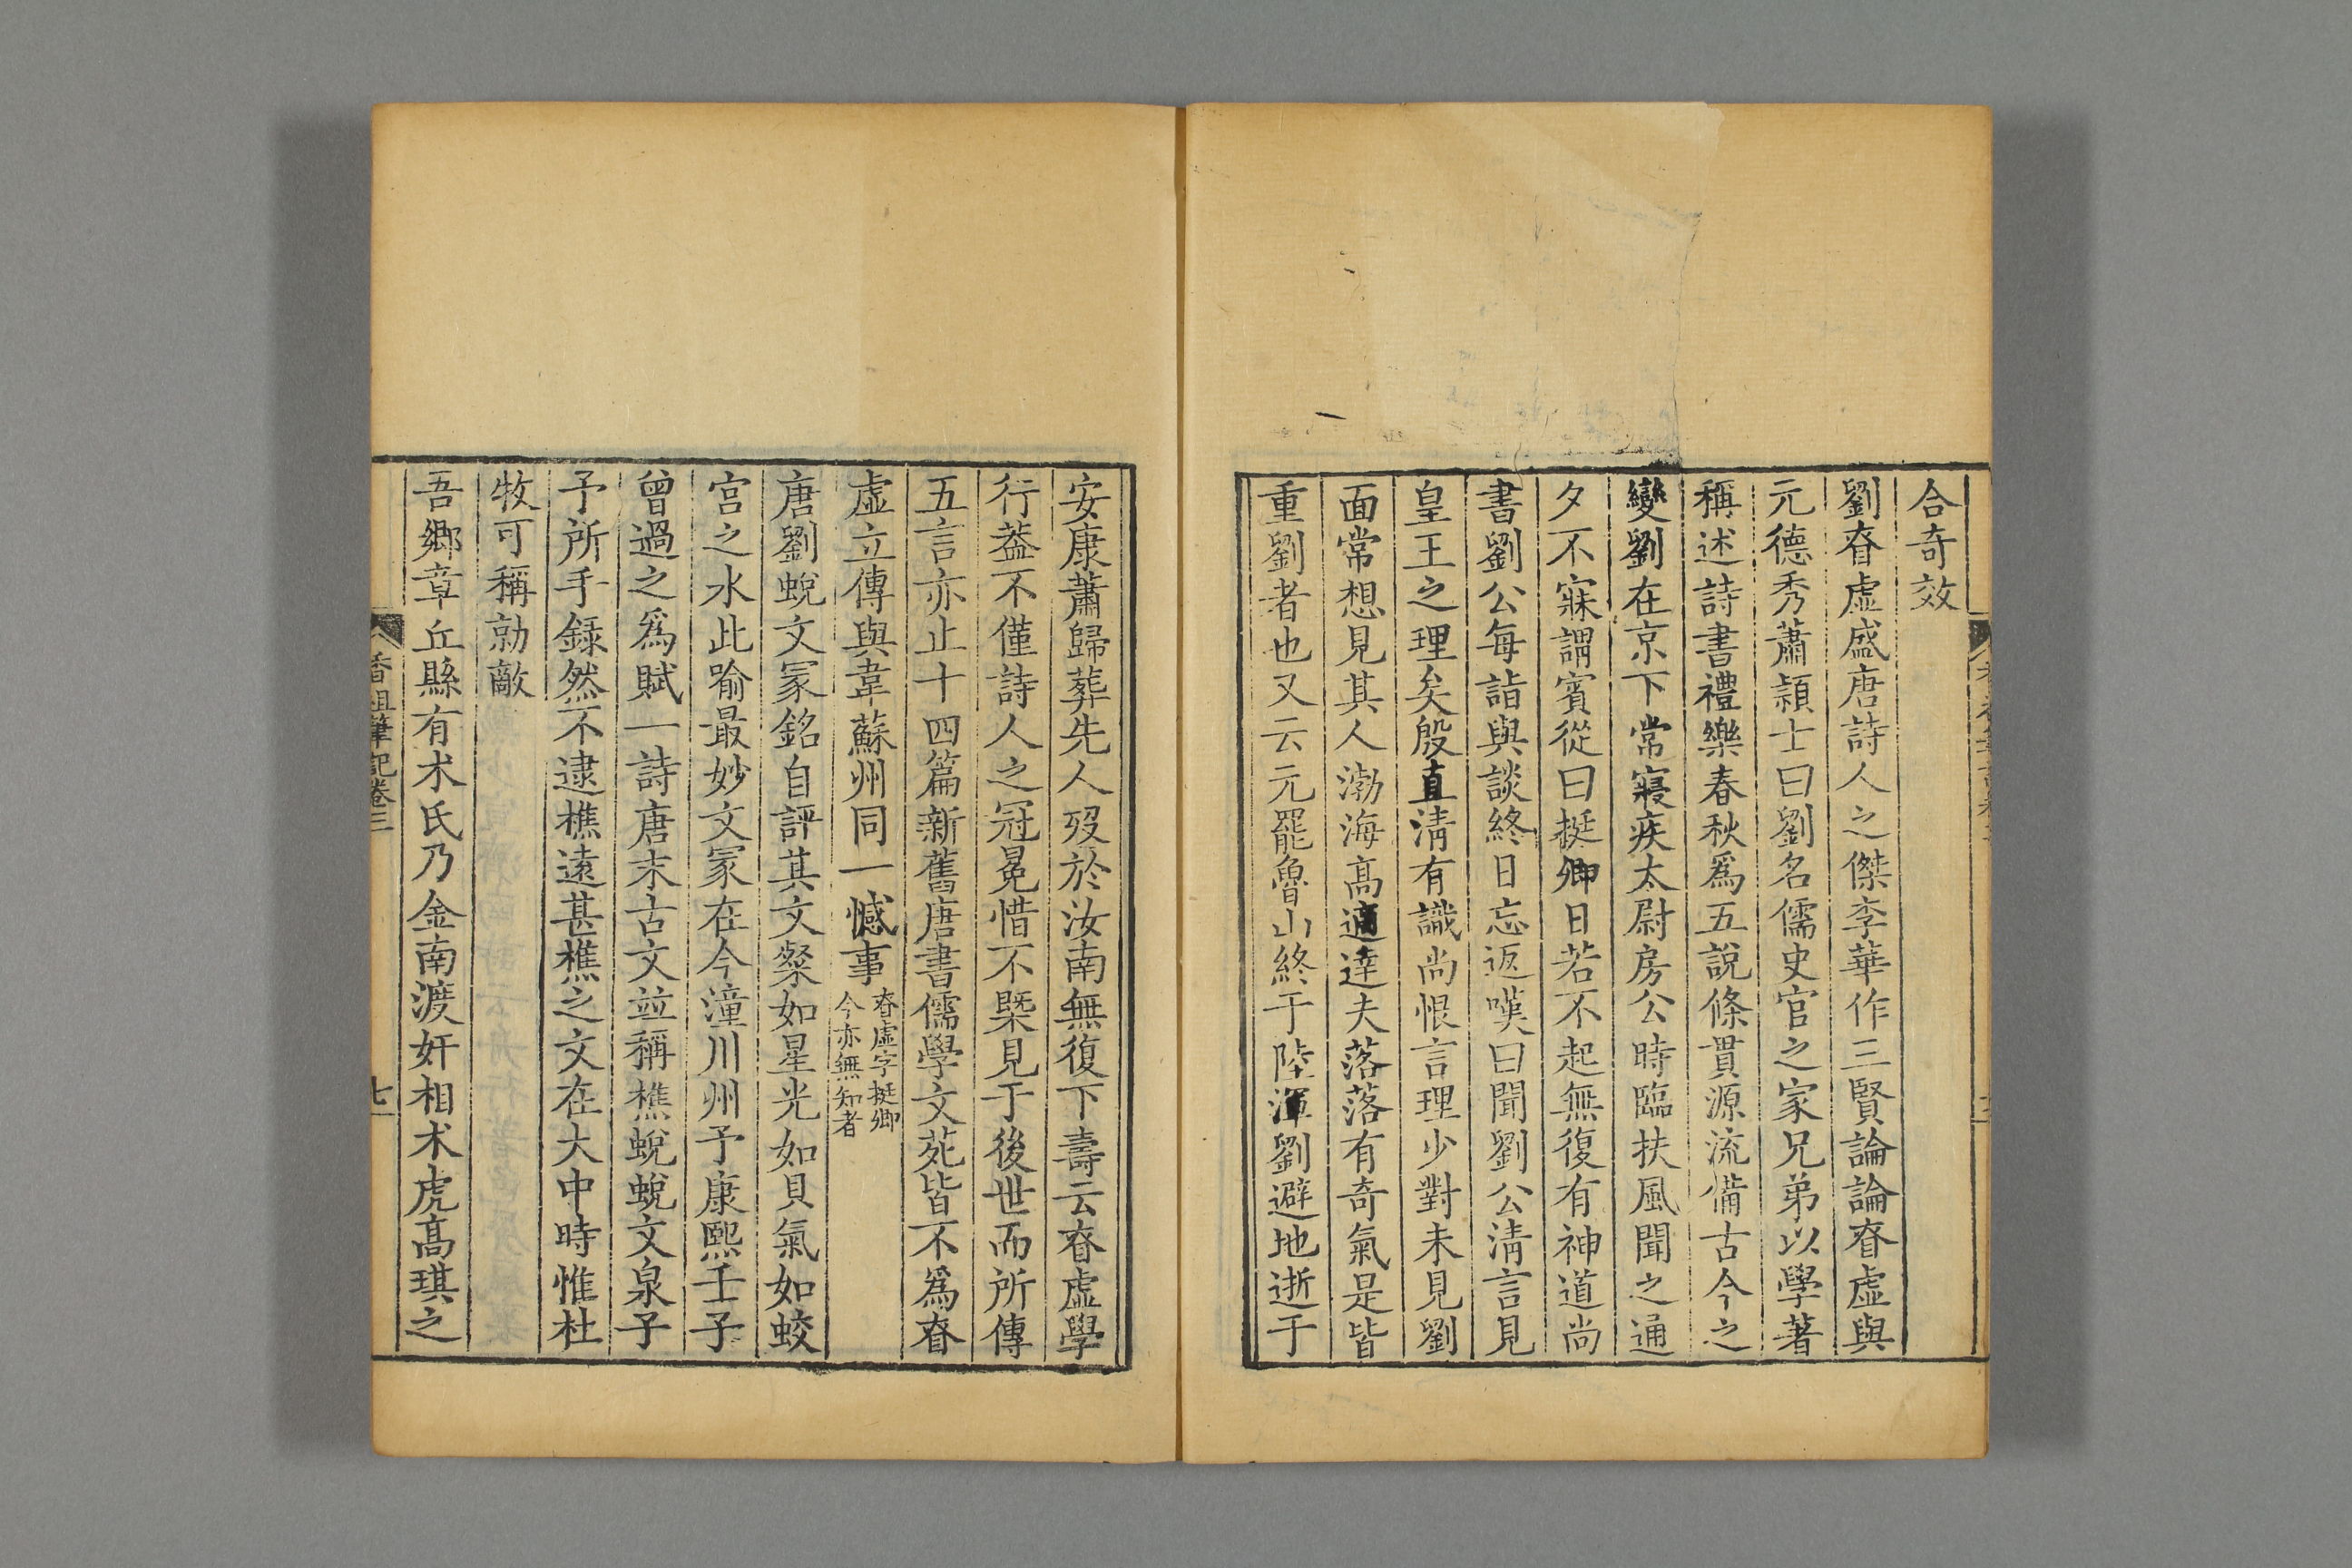 合奇效
劉昚虛盛唐詩人之傑李華作三賢論論昚虛與
元德秀蕭潁士曰劉名儒史官之家兄弟以學著
稱述詩書禮樂春秋爲五說條貫源流備古今之
變劉在京下常寢疾太尉房公時臨扶風聞之通
夕不寐謂賓從曰挺卿日若不起無復有神道尚
書劉公每詣與談終日忘返嘆曰聞劉公淸言見
皇王之理矣殷直淸有識尚恨言理少對未見劉
面常想見其人渤海高適達夫落落有奇氣是皆
重劉者也又云元罷魯山終于陸渾劉避地逝于
安康蕭歸葬先人歿於汝南無復下壽云昚虛學
行蓋不僅詩人之冠冕惜不槩見于後世而所傳
五言亦止十四篇新舊唐書儒學文苑皆不爲昚
虛立傳與韋蘇州同一憾事昚虛字挺卿
今亦無知者
唐劉蛻文冢銘自評其文粲如星光如貝氣如蛟
宮之水此喻最妙文冢在今潼川州予康熙壬子
曾過之爲賦一詩唐末古文竝稱樵蛻蛻文泉子
予所手錄然不逮樵遠甚樵之文在大中時惟杜
牧可稱勍敵
吾鄉章丘縣有朮氏乃金南渡奸相朮虎高琪之
香祖筆記卷三
七